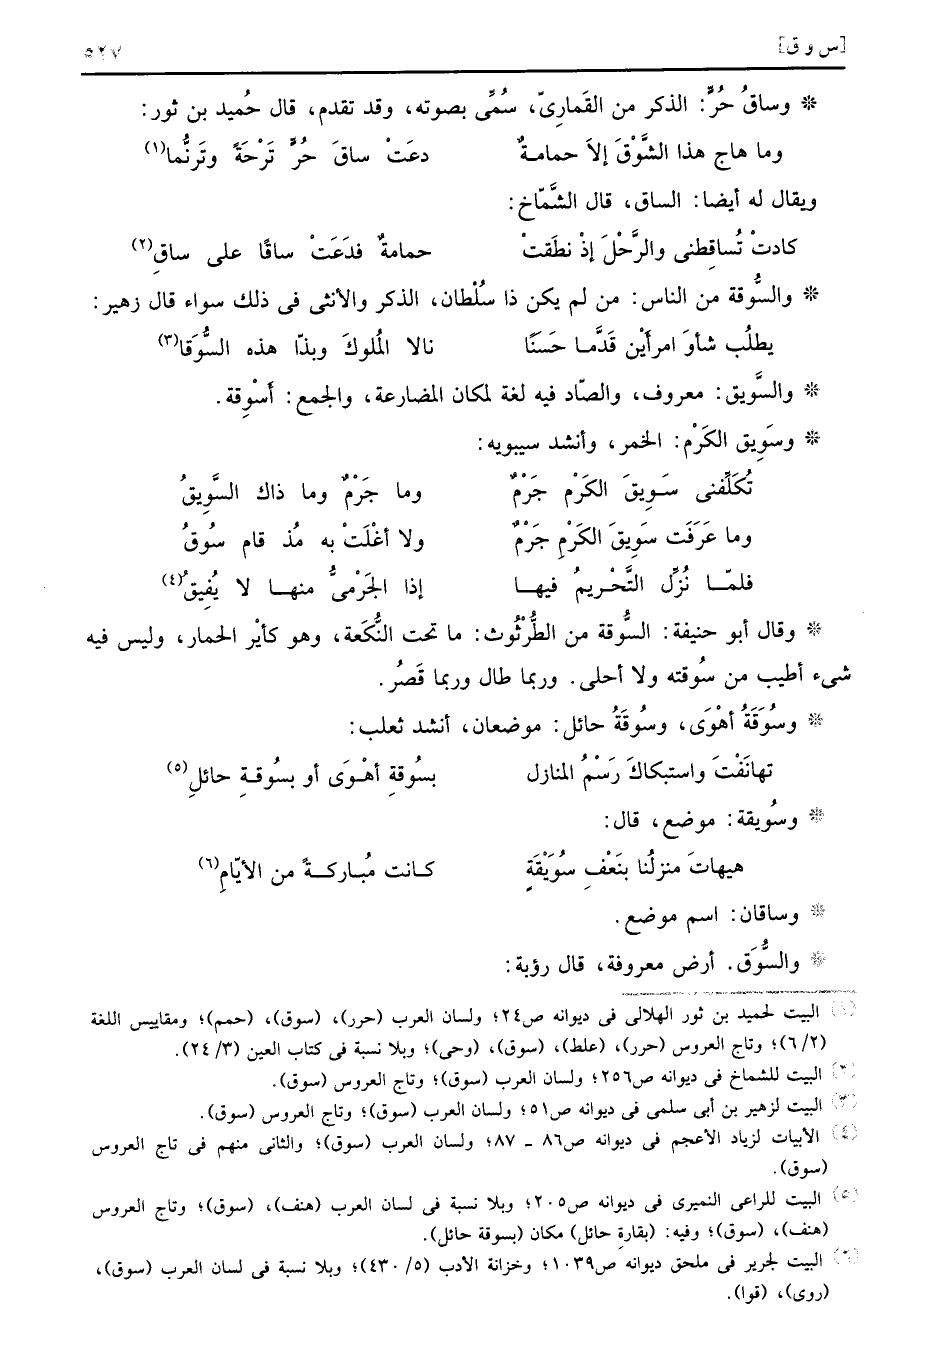 [س و ق] ٥٢٧
* وساقُ حُرٍّ: الذكر من القَمارِىّ، سُمِّى بصوته، وقد تقدم، قال حُميد بن ثور:
وما هاج هذا الشَّوْقَ إلاَ حمامةٌ دعَتْ ساقَ حُرٍّ تَرْحَةً وتَرنُّما(١)
ويقال له أيضا: الساق، قال الشَّمّاخ:
كادتْ تُساقِطنى والرَّحْلَ إذْ نطَقتْ حمامةٌ فدَعَتْ ساقًا على ساقِ(٢)
* والسُّوقة من الناس: من لم يكن ذا سُلْطان، الذكر والأنثى فى ذلك سواء قال زهير:
يطلُب شأوَ امرأَيْن قَدَّمـا حَسَنًا نالا المُلوكَ وبذّا هذه السُّوَقَا(٣)
* والسَّويق: معروف، والصّاد فيه لغة لمكان المضارعة، والجمع: أَسْوِقة.
* وسَوِيق الكَرْم: الخمر، وأنشد سيبويه:
تُكَلِّفنى سَـوِيقَ الكَرْمِ جَرْمٌ وما جَرْمٌ وما ذاك السَّوِيقُ
وما عَرَفَت سَوِيقَ الكَرْمِ جَرْمٌ ولا أغْلَتْ به مُذ قام سُوقُ
فلمّـا نُزِّل التَّحْـريمُ فيهـا إذا الجَرْمىُّ منهـا لا يُفِيقُ(٤)
* وقال أبو حنيفة: السُّوقة من الطُّرْثُوث: ما تحت النُّكَعة، وهو كأَيْر الحمار، وليس فيه
شىء أطيب من سُوقته ولا أحلى. وربما طال وربما قَصُر.
* وسُوقَةُ أهْوَى، وسُوقَةُ حائل: موضعان، أنشد ثعلب:
تهانَفْتَ واستبكاكَ رَسْمُ المنازل بسُوقةِ أهْـوَى أو بسُوقـةِ حائلِ(٥)
* وسُويقة: موضع، قال:
هيهاتَ منزلُنا بنَعْفِ سُوَيْقَةٍ كـانت مُبـاركـةً من الأيّامِ(٦)
* وساقان: اسم موضع.
* والسُّوَق. أرض معروفة، قال رؤبة:
(١) البيت لحميد بن ثور الهلالى فى ديوانه ص٢٤؛ ولسان العرب (حرر)، (سوق)، (حمم)؛ ومقاييس اللغة
(٦/٢)؛ وتاج العروس (حرر)، (علط)، (سوق)، (وحى)؛ وبلا نسبة فى كتاب العين (٢٤/٣).
(٢) البيت للشماخ فى ديوانه ص٢٥٦؛ ولسان العرب (سوق)؛ وتاج العروس (سوق).
(٣) البيت لزهير بن أبى سلمى فى ديوانه ص٥١؛ ولسان العرب (سوق)؛ وتاج العروس (سوق).
(٤) الأبيات لزياد الأعجم فى ديوانه ص٨٦ ـ ٨٧؛ ولسان العرب (سوق)؛ والثانى منهم فى تاج العروس
(سوق).
(٥) البيت للراعى النميرى فى ديوانه ص٢٠٥؛ وبلا نسبة فى لسان العرب (هنف)، (سوق)؛ وتاج العروس
(هنف)، (سوق)؛ وفيه: (بقارةِ حائل) مكان (بسوقة حائل).
(٦) البيت لجرير فى ملحق ديوانه ص١٠٣٩؛ وخزانة الأدب (٤٣٠/٥)؛ وبلا نسبة فى لسان العرب (سوق)،
(روى)، (قوا).